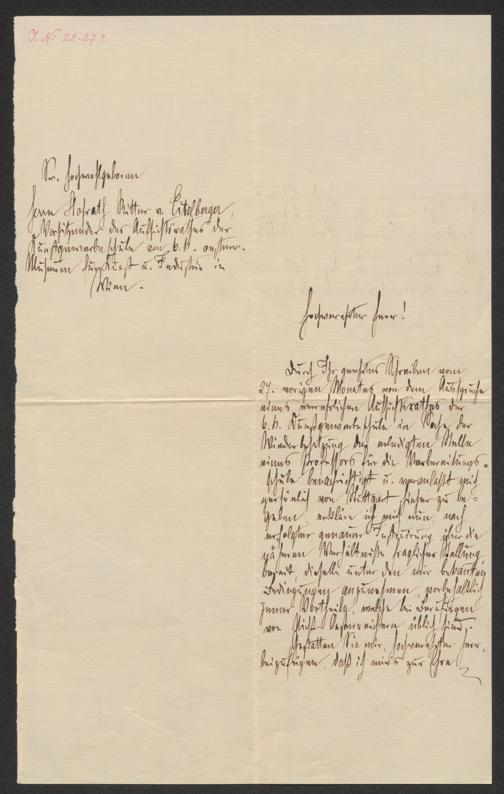 J. N. 22.272
Sr. Hochwohlgeboren
Herrn Hofrath Ritter v. Eitelberger,
Vorsitzender des Aufsichtsrathes der
Kunstgewerbeschule am k. k. oesterr.
Museum für Kunst u. Industrie in
Wien.
Hochverehrter Herr!
Durch Ihr geehrtes Schreiben vom
27. vorigen Monates von dem Ausspruche
eines verehrlichen Aufsichtsrathes der
k. k. Kunstgewerbeschule in Sache der
Wiederbesetzung der erledigten Stelle
eines Professors für die Vorbereitungs-
schule benachrichtigt u. veranlasst mich
persönlich von Stuttgart hieher zu be-
geben, erkläre ich mich nun nach
erfolgter genauer Instruirung über die
näheren Verhältnisse fraglicher Stellung,
bereit, dieselbe unter den mir bekannten
Bedingungen anzunehmen, vorbehaltlich
jener Vortheile, welche bei Berufungen
von Nicht-Oesterreichern üblich sind.
Gestatten Sie mir, hochverehrter Herr,
beizufügen, daß ich mir's zur Ehre